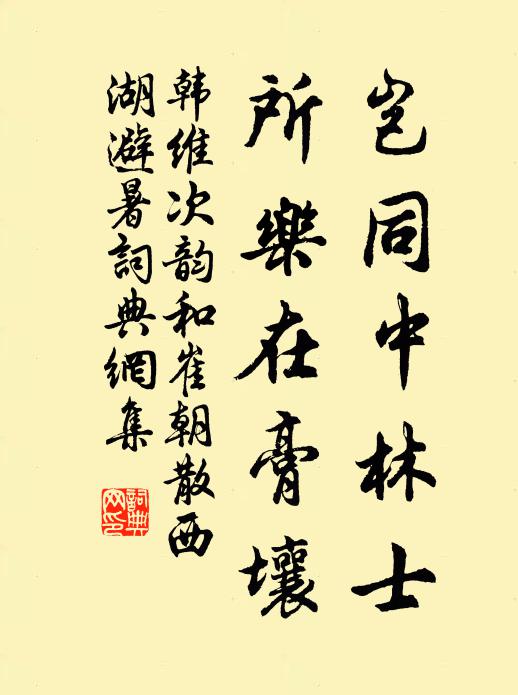 岂同中林士
所樂在膏壤
韩維次韵和崔朝散西
湖避暑詞典網集
詞典
网印